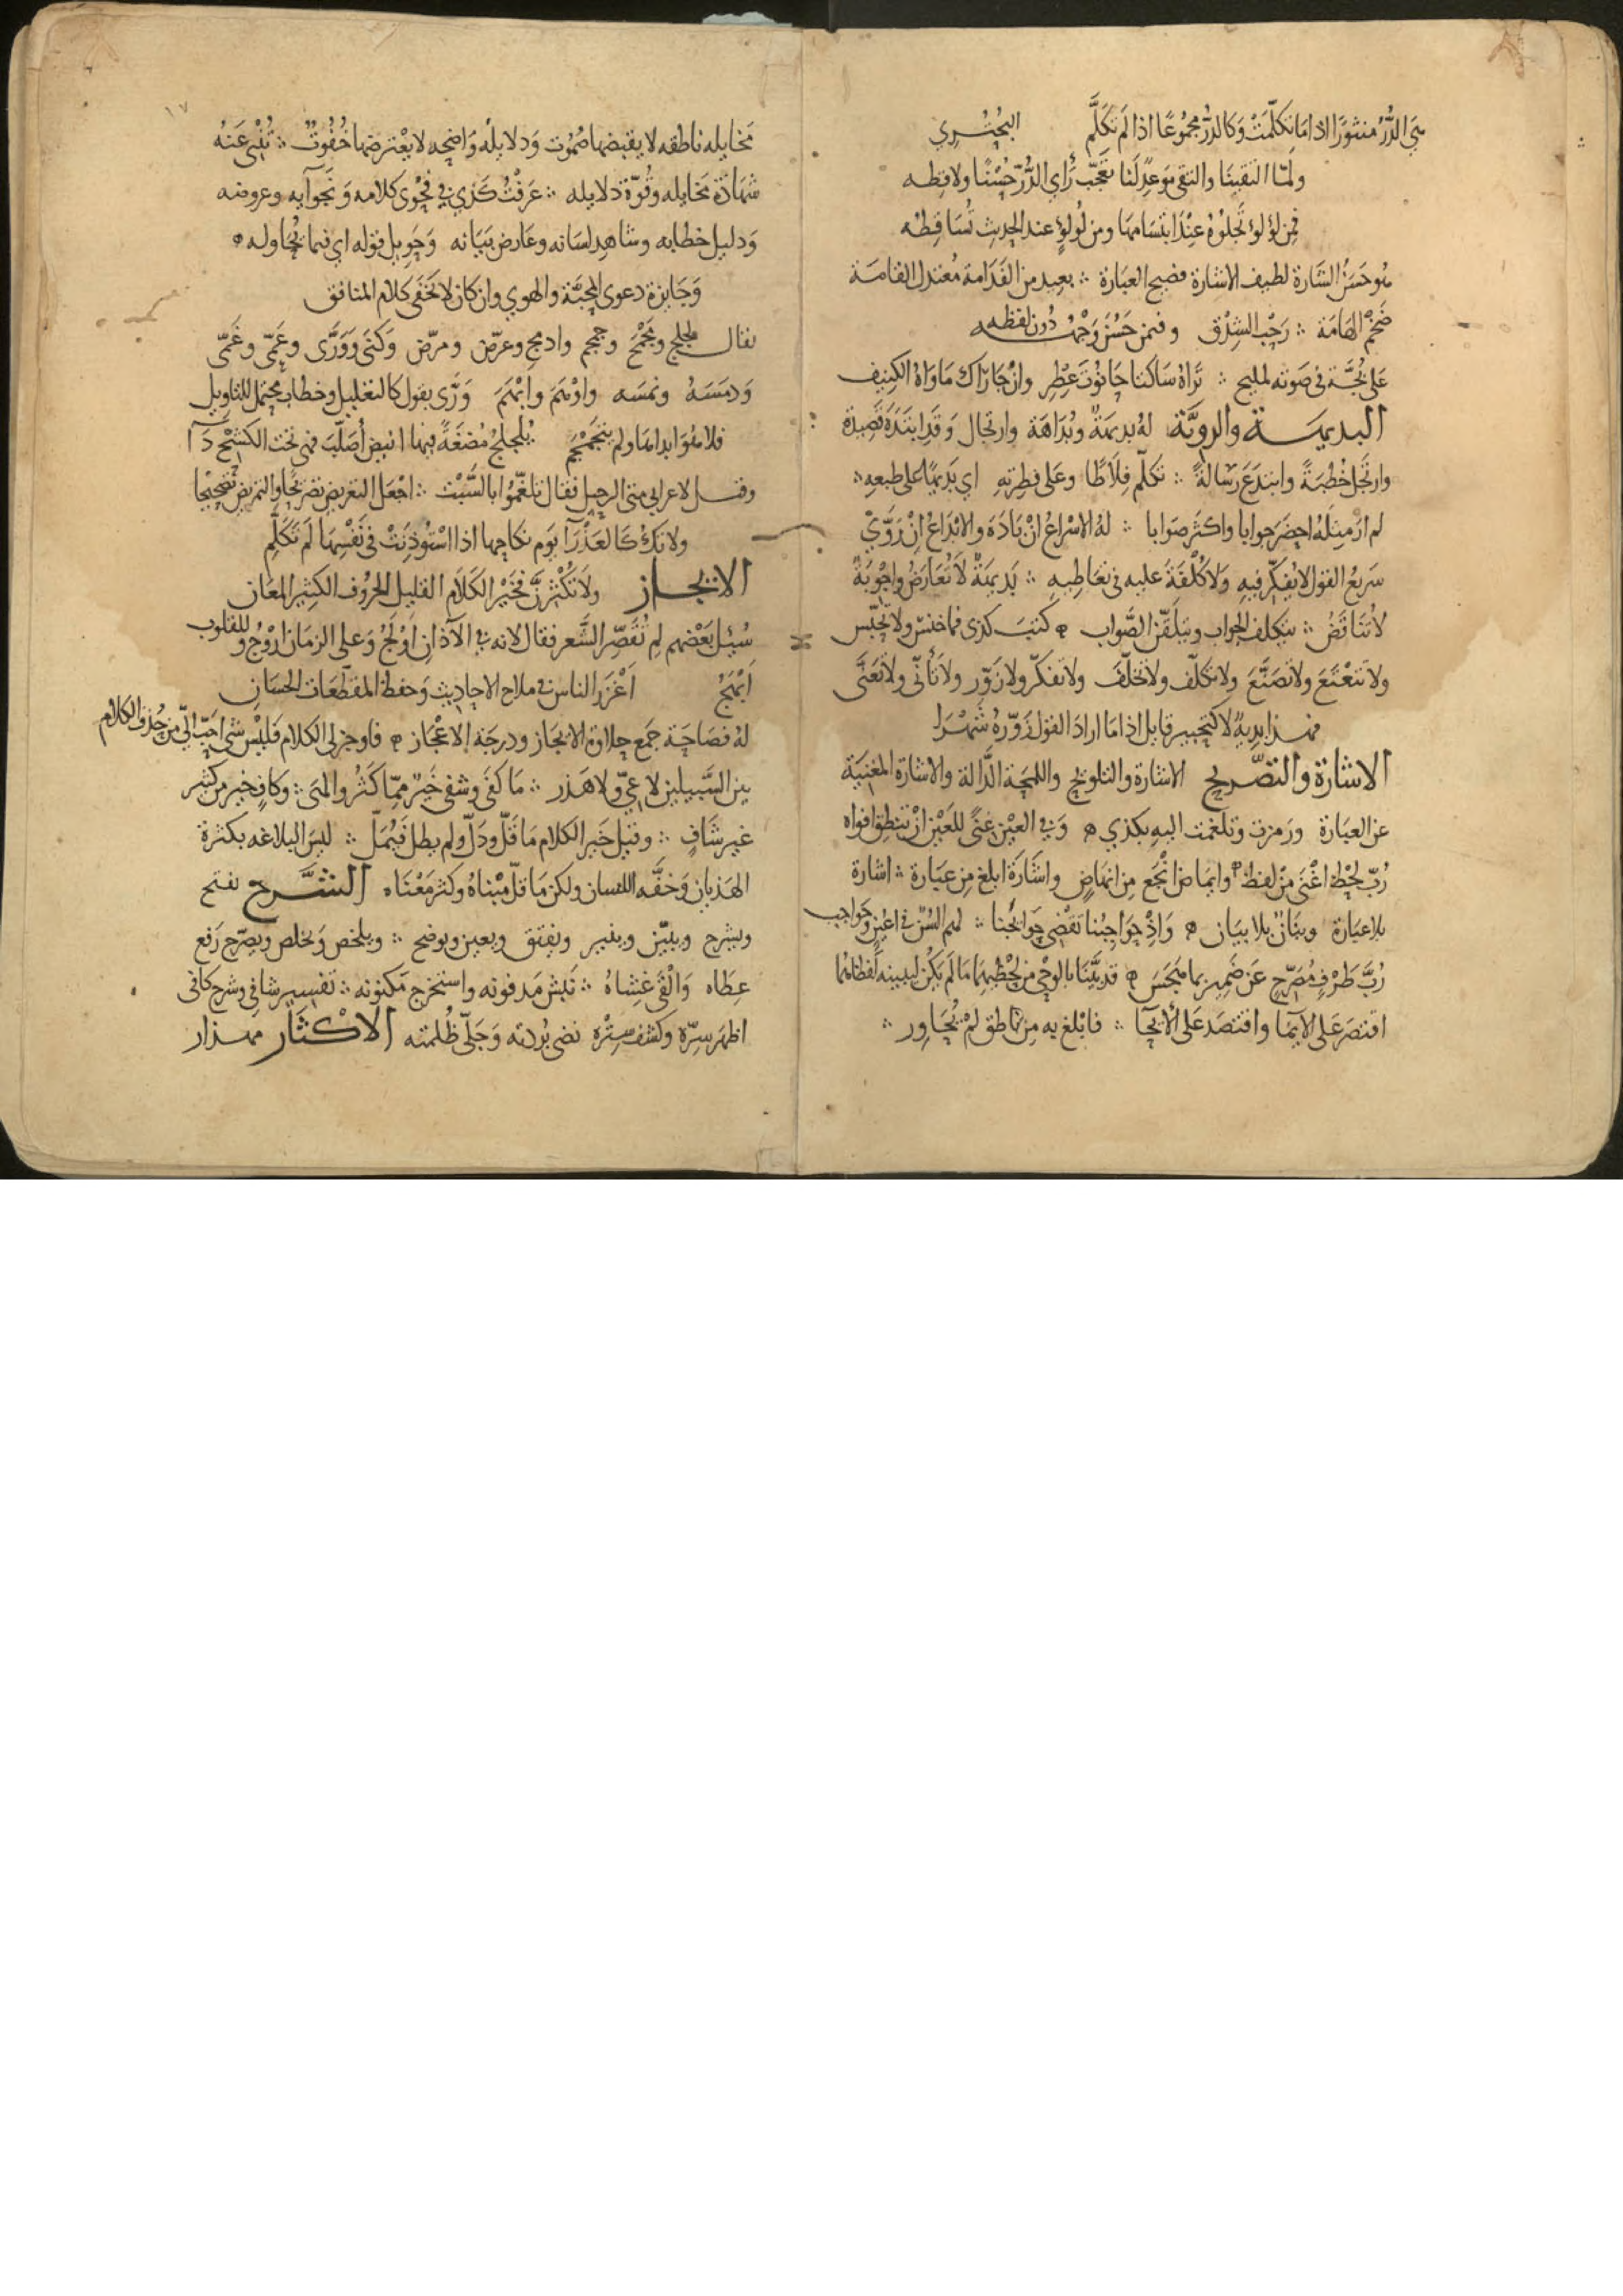 هي الدُّرُّ منثورًا اذا ما تكلّمتْ وكالدرّ مجموعًا اذا لم تكلَّمِ البُحْتُـري
ولمّا التقينا والنقى موعدٌ لنا تعجّب رأي الدُّرّ حُسْنًا ولاقطه
فمن لؤلؤ تجلوه عند ابتسامها ومن لؤلؤٍ عند الحديث تساقطه
هو حسَنُ الشارة لطيف الاشارة فصيح العبارة ؞ بعيد من الفدامة معتدل القامة
ضخْم الهامة ؞ رحْب الشدْق وفيمن حَسُنَ وجهُه دُون لفظه
على بُحَّة في صوته لمليح ؞ تراه ساكتا حانوت عطر وان جاراك ماواه الكنيف
البديهــة والرويَّة له بديهة وبُداهة وارتجال وقد ابتدَهَ قصيدة
وارتجل خُطْبةً وابتدع رسالةً ؞ تكلّم فِلَاطًا وعلى فطرته اي بديهًا على طبعه ؞
لم ار مثله احضر جوابا واكثر صوابا ؞ له الاسراعُ ان بادَهَ والابداعُ ان روَّيْ
سريع القول لا يفكّر فيه ولا كُلْفة عليه في تعاطيه ؞ بديهة لا تُعارَضُ واجوبةٌ
لا تتناقضُ ؞ يتكلف الجواب ويتلقّن الصَّواب كتبَ كذى فما خنس ولا تحبّس
ولا تتعْتَع ولا تصنَّع ولا تكلّف ولا تخلّف ولا تفكّر ولا زوّر ولا تأنّى ولا تعنّى
فهــذا بديهٌ لا كتحبير قايل اذا ما اراد القول زوّرهُ شَهْرَا
الاشارة والتصّريح الاشارة والتلويح واللمحة الدَّالة والاشارة المغنية
عن العبارة ورمزت وتلغمت اليه بكذي وفي العيْن غنًى للعيْن انْ تنطق افواه
رُبّ لحْظ اغْنَى منْ لفظ وايماض انْجع من انهاضٍ واشارَة ابلغ من عبارة ؞ اشارة
بلا عبارة وبنَانٌ بلا بيان واذْ حواجبُنا تقْضي حوائجُنا ؞ لهم السُنٌ في اعينٍ وحواجب
رُبَّ طَرْفٍ مُصَرِّحٍ عن ضَمير بما هجَسَ قد بيَّنَا بالوحْي من لحْظيهما ما لم يكنْ ليبينه لفظاهُما
اقتصرَ على الايمَا واقتصد على الايحَا ؞ فابْلغ به من ناطق لمْ يُحَاوِر ؞
١٧
مخايله ناطقه لا يقبضها صُمُوت ودلايلُه واضحه لا يعْترضها خُفُوتٌ ؞ تُنْبي عَنهُ
شهادَة مخايله وقُوّة دلايله ؞ عَرَفْتُ كذي في فحْوى كلامه ونجوآيه وعروضه
ودليل خطابه وشاهد لسَانه وعارض بَيَانه وحَويل قوله اي فيما يُحاوله
وجايزة دعوى المحبَّة والهوي وان كان لا يخْفَى كلام المنافق
يقال لجلج ومَجْمَجَ وجمجم وادمج وعرّض ومرّض وكَنَى وورَّى وعَمّى وغَمّى
ودمَسَهُ ونمسَه واوْهَمَ وابْهَمَ ورَّى بقول كالتعْليل وخطاب محتمل للتاويل
فلا هوَ ابداها ولم يتجَمْجَم يُلجلجُ مُضغَةً فيها انيض أصَلّتْ فهي تحت الكشْح دآ
وقيـل لاعرابي متى الرحيل فقال تلغّمُوا بالسَّبْت ؞ اجْعَل التعْريض تصْريحًا والتمريض تصْحِيْحا
ولا تكُ كالعَذْرَآ يَوم نكاحِها اذا اسْتُوذِنَتْ في نفْسِها لم تكلِّمِ
الايجــاز ولا تُكْثِرَنَّ فخَيْر الكلَام القليل الحُروف الكثير المعَان
سُئِل بَعْضهم لِم تُقصِّر الشعر فقال لانه في الآذان اوْلَجُ وعلى الزمان ارْوجُ وللقلوب
ابْهَجُ اغْزَر الناس في ملاح الاحاديث وحفظ المقطّعات الحسَان
لهُ فصاحَة جمَع حلاوة الايجاز ودرجَة الاعْجاز فاوجز لي الكلام فليْس شي احبّ اليّ من حُذف الكلام
بين السَّبيلين لا عِيٌّ ولا هَذر ؞ ما كفَى وشفى خيرٌ ممّا كثُر والهَى ؞ وكافٍ خير من كثير
غير شَافٍ ؞ وقيل خير الكلام ما قَلّ ودَلّ ولم يطل فيُمَلّ ؞ ليس البلاغه بكثرة
الهذيان وخفَّه اللسان ولكن ما قلّ مبْناهُ وكثر مَعْناه الشَّــرح يفتح
ويشرح ويبيّن وينير ويفتق ويعين ويوضح ؞ ويلخص ويخلص ويصرّح رَفع
غطَاه والْقَى غِشاهُ ؞ نبش مَدفونه واستخرج مكنونه ؞ تفسير شافي وشرح كافى
اظهر سِرّه وكشف سِتْره نضى بُرْدته وجَلّى ظُلمته الاكْثَار مهــذار